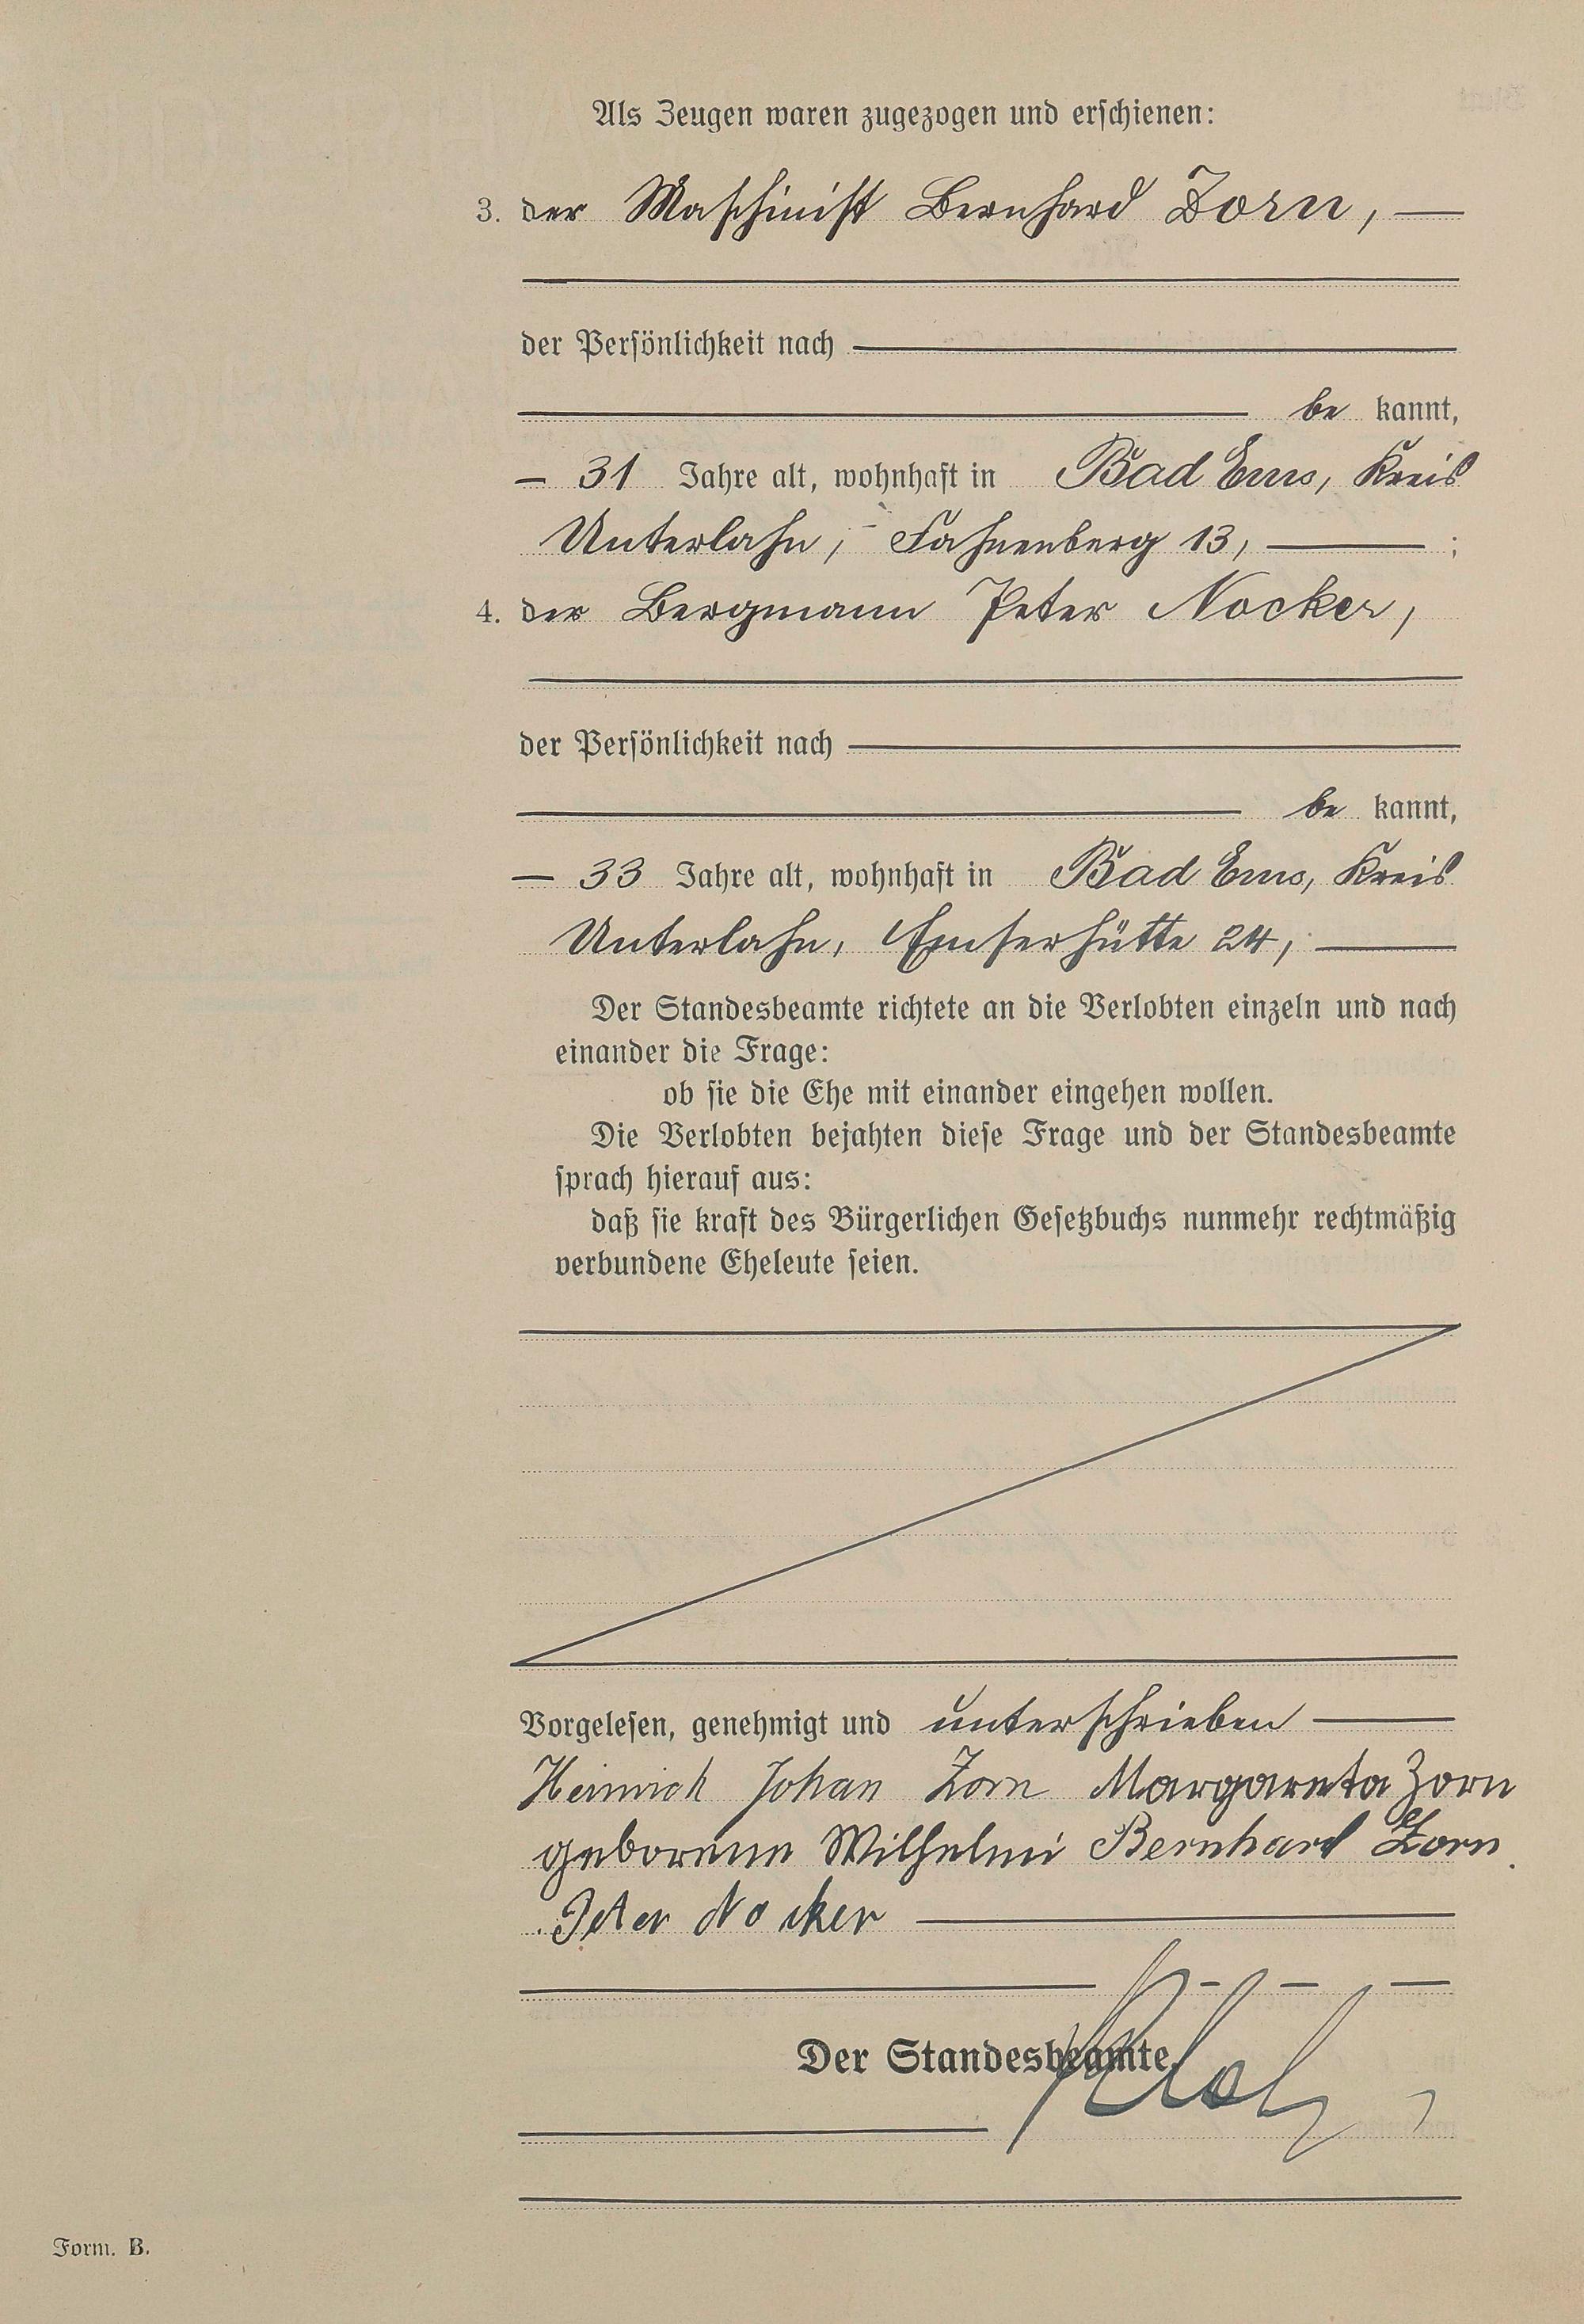 Als Zeugen waren zugezogen und erschienen:
3. der Maschinist Bernhard Zorn,
der Persönlichkeit nach
be kannt,
31 Jahre alt, wohnhaft in Bad Ems, Kreis
Unterlahn, Fahnenberg 13, ;
4. der Bergmann Peter Nocker,
der Persönlichkeit nach
be kannt,
33 Jahre alt, wohnhaft in Bad Ems, Kreis
Unterlahn, Emserhütte 24,
Der Standesbeamte richtete an die Verlobten einzeln und nach
einander die Frage:
ob sie die Ehe mit einander eingehen wollen.
Die Verlobten bejahten diese Frage und der Standesbeamte
sprach hierauf aus:
daß sie kraft des Bürgerlichen Gesetzbuchs nunmehr rechtmäßig
verbundene Eheleute seien.
Vorgelesen, genehmigt und unterschrieben
Heinrich Johan Zorn Margareta Zorn
geborene Wilhelmi Bernhard Zorn
Peter Nocker
Der Standesbeamte.
Form. B.